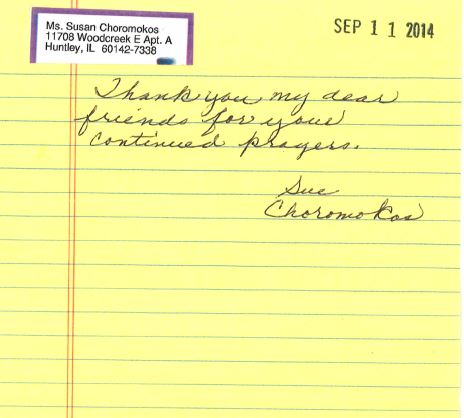 Ms. Susan Choromokos
11708 Woodcreek E Apt. A
Huntley, IL 60142-7338
SEP 11 2014
Thank you my dear
friends for your
continued prayers.
Sue
Choromokos